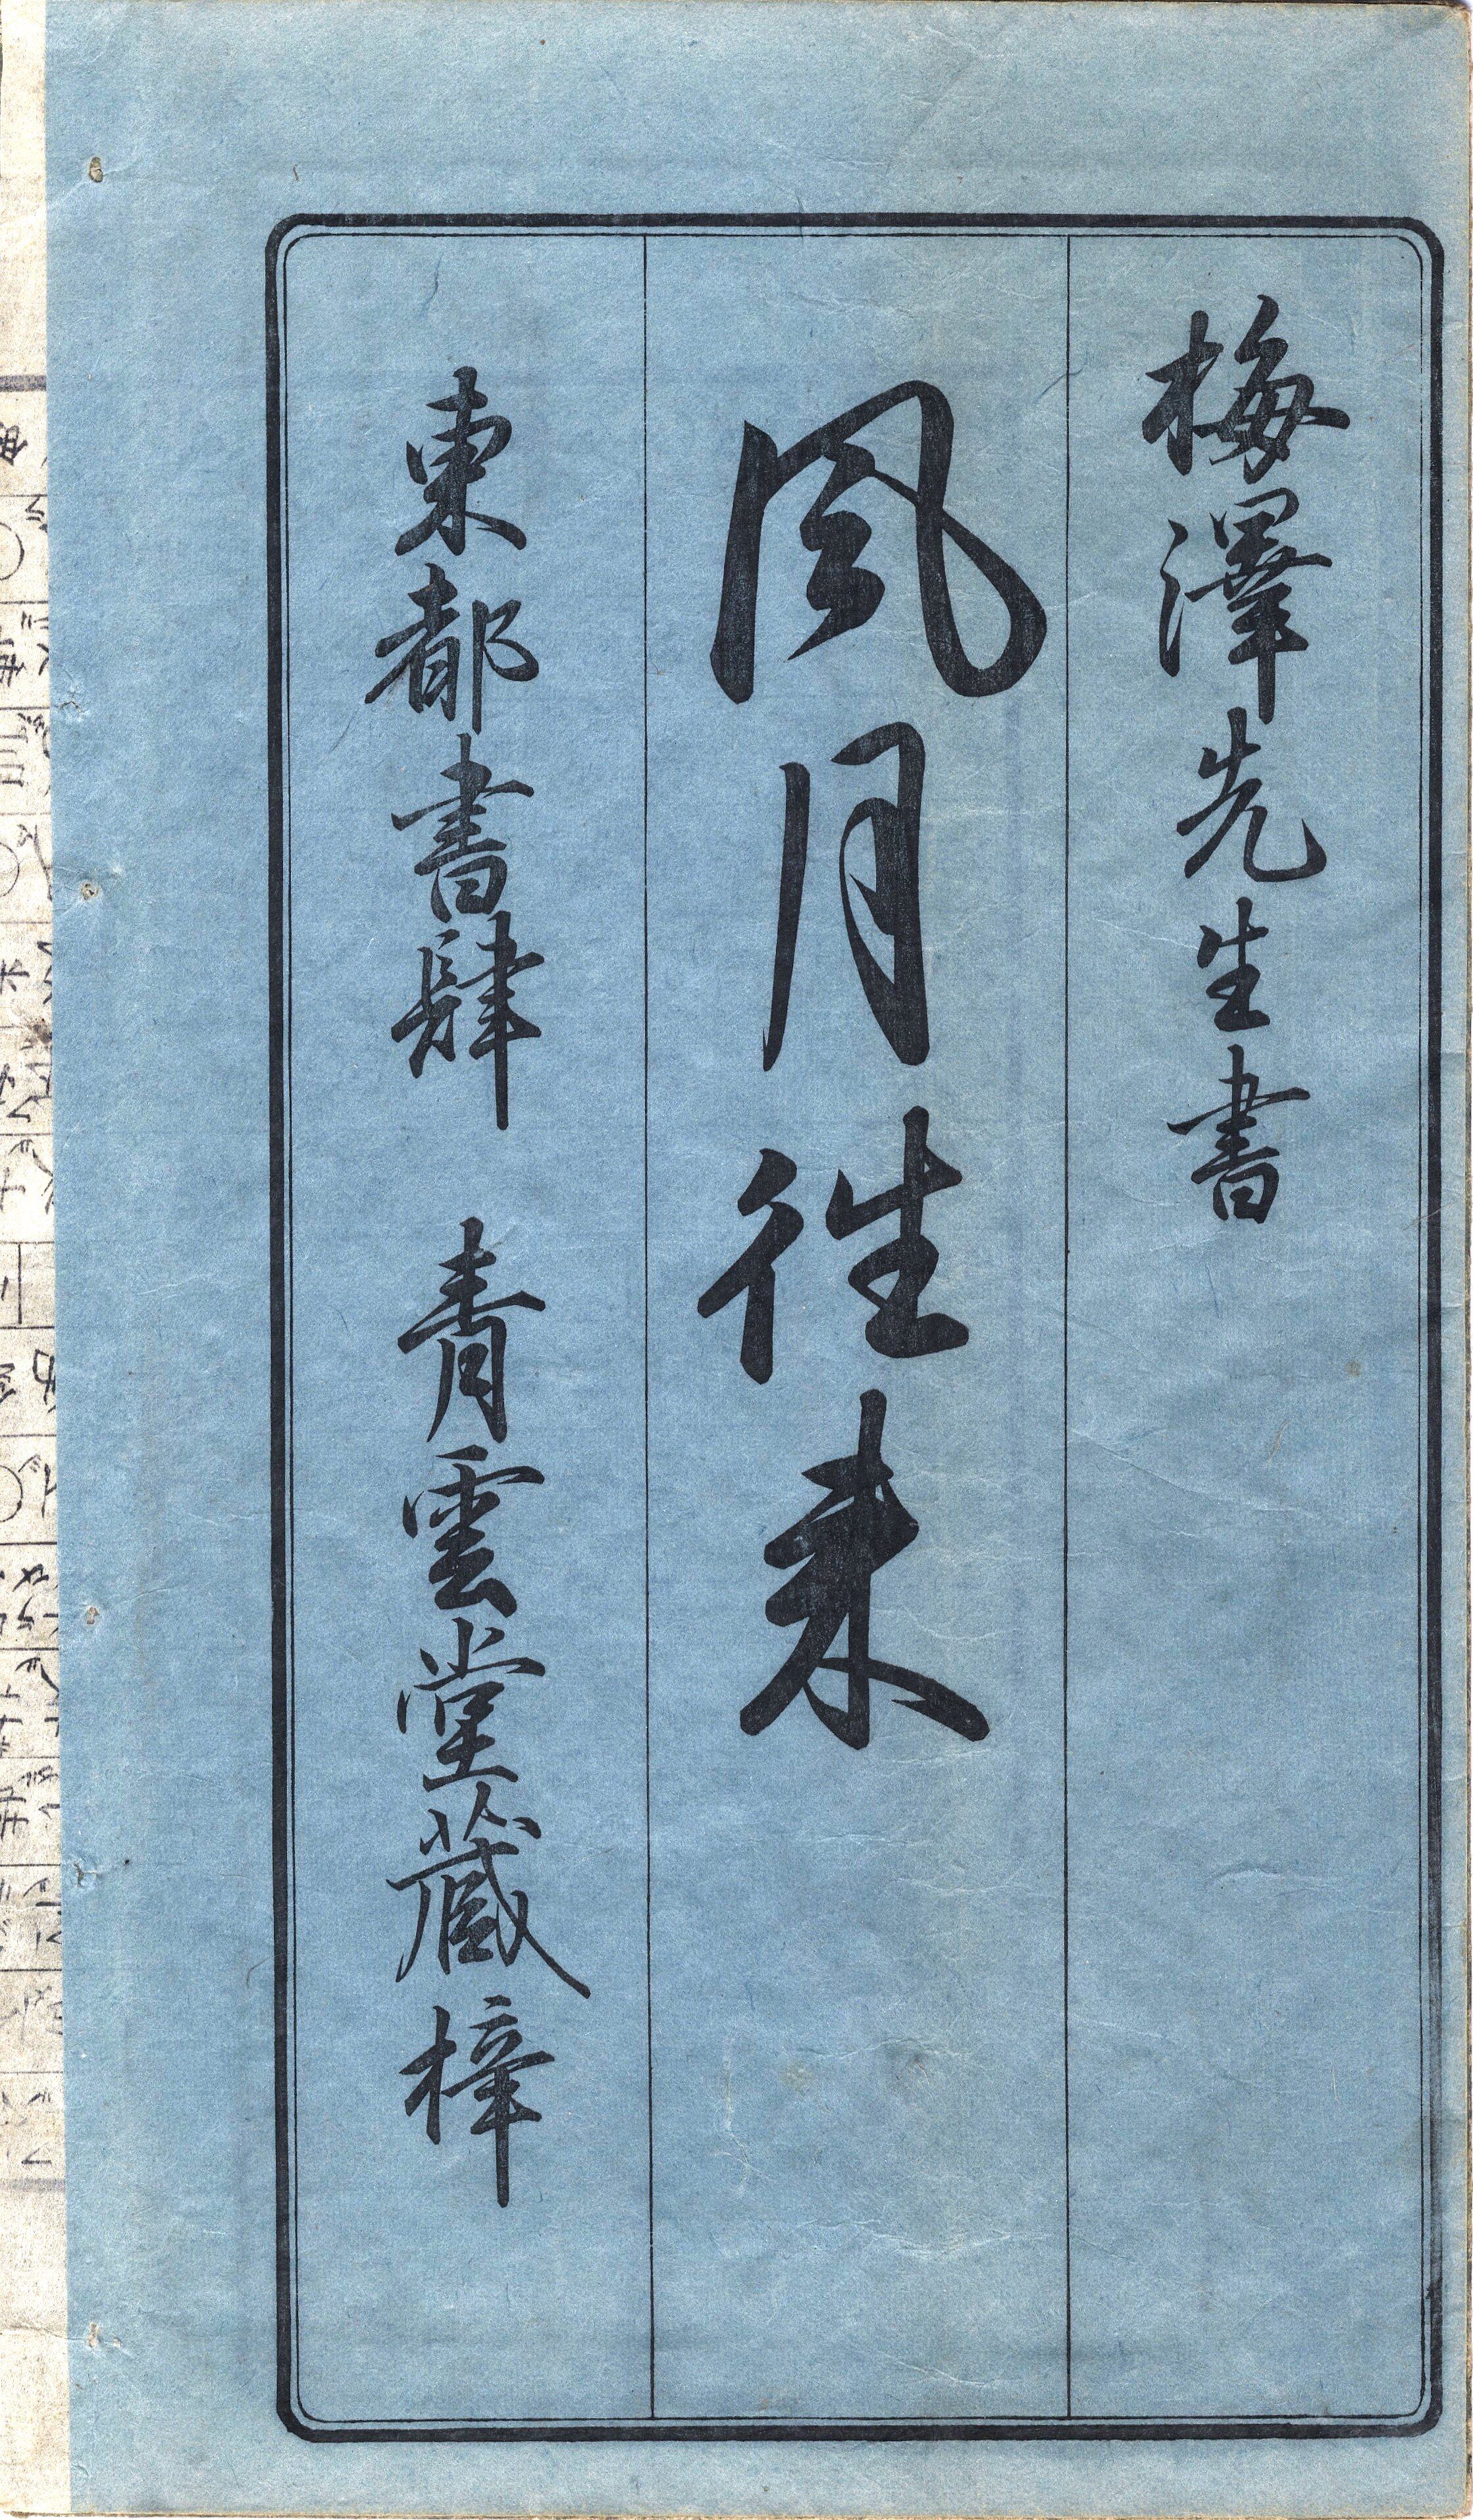 梅澤先生書
風月往来
東都書肆　青雲堂蔵梓